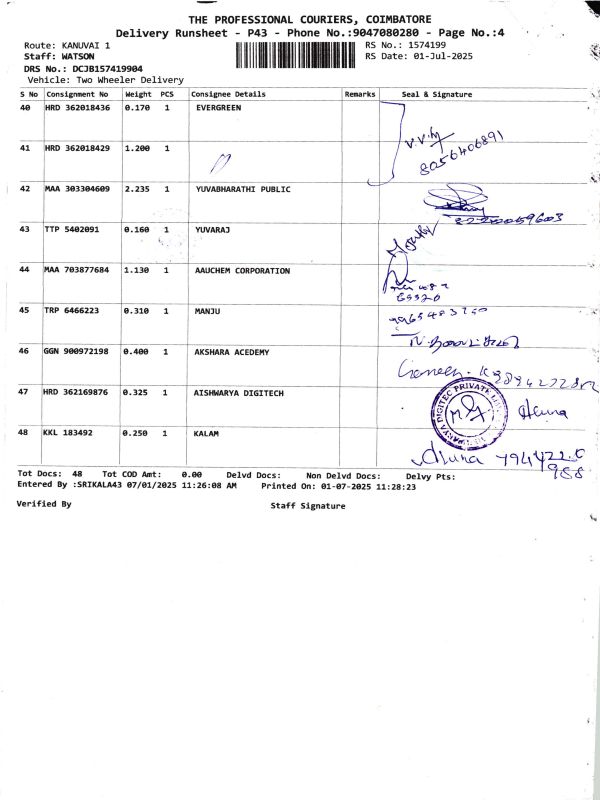 THE PROFESSIONAL COURIERS, COIMBATORE
Delivery Runsheet - P43 - Phone No.:9047080280 - Page No.:4
Route: KANUVAI 1 RS No.: 1574199
Staff: WATSON RS Date: 01-Jul-2025
DRS No.: DCJB157419904
Vehicle: Two Wheeler Delivery
S No Consignment No Weight PCS Consignee Details Remarks Seal & Signature
40 HRD 362018436 0.170 1 EVERGREEN
41 HRD 362018429 1.200 1
8056406891
42 MAA 303304609 2.235 1 YUVABHARATHI PUBLIC
43 TTP 5402091 0.160 1 YUVARAJ
44 MAA 703877684 1.130 1 AAUCHEM CORPORATION
45 TRP 6466223 0.310 1 MANJU
46 GGN 900972198 0.400 1 AKSHARA ACEDEMY
47 HRD 362169876 0.325 1 AISHWARYA DIGITECH
48 KKL 183492 0.250 1 KALAM
Tot Docs: 48 Tot COD Amt: 0.00 Delvd Docs: Non Delvd Docs: Delvy Pts:
Entered By :SRIKALA43 07/01/2025 11:26:08 AM Printed On: 01-07-2025 11:28:23
Verified By Staff Signature